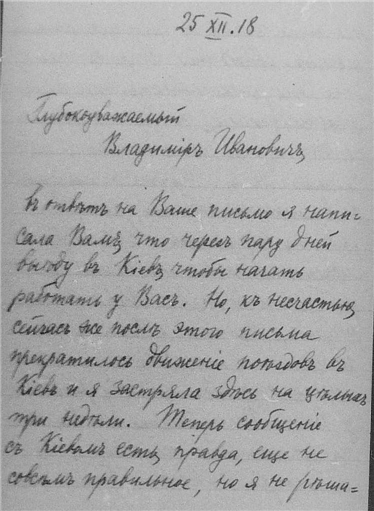 25 XII. 18
Глубокоуважаемый
Владиміръ Ивановичъ,
въ отвѣтъ на Ваше письмо я напи=
сала Вамъ, что черезъ пару дней
выѣду въ Кіевъ, чтобы начать
работать у Васъ. Но, къ несчастью,
сейчасъ же послѣ этого письма
прекратилось движеніе поѣздовъ въ
Кіевъ и я застряла здѣсь на цѣлыхъ
три недѣли. Теперь сообщеніе
съ Кіевомъ есть, правда, еще не
совсѣмъ правильное, но я не рѣша=